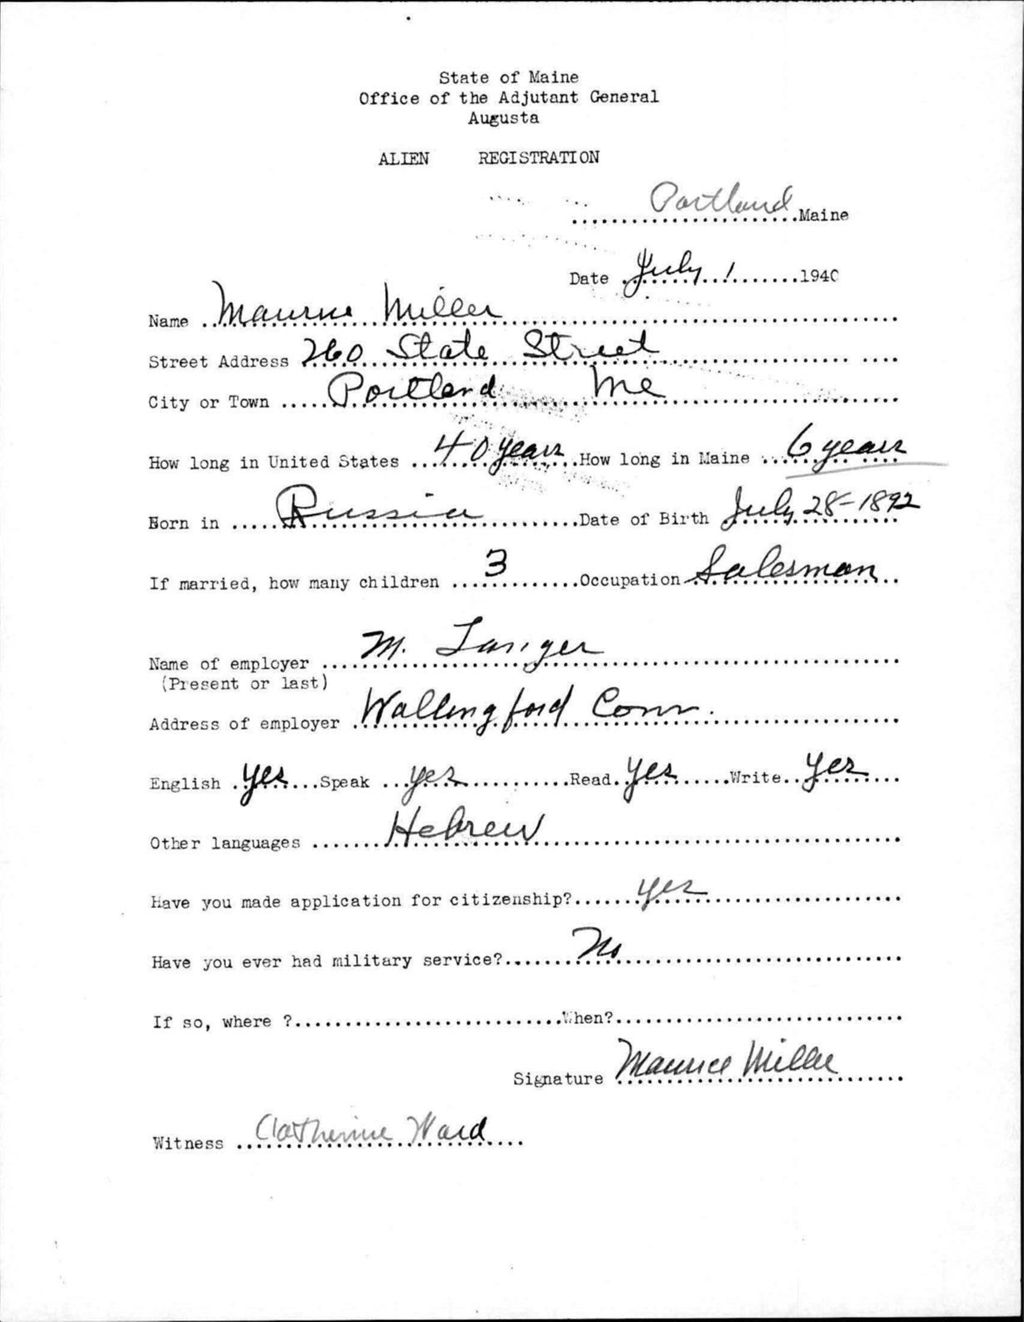 State of Maine
Office of the Adjutant General
Augusta
ALIEN REGISTRATION
Portland Maine
Date July 1 1940
Name Maurice Miller
Street Address 260 State Street
City or Town Portland Me
How long in United States 40 years How long in Maine 6 years
Born in Russia Date of Birth July 28-1892
If married, how many children 3 Occupation Salesman
Name of employer M. Langer
(Present or last)
Address of employer Wallingford Conn.
English yes Speak yes Read yes Write yes
Other languages Hebrew
Have you made application for citizenship? yes
Have you ever had military service? No
If so, where ? When?
Signature Maurice Miller
Witness Catherine Ward